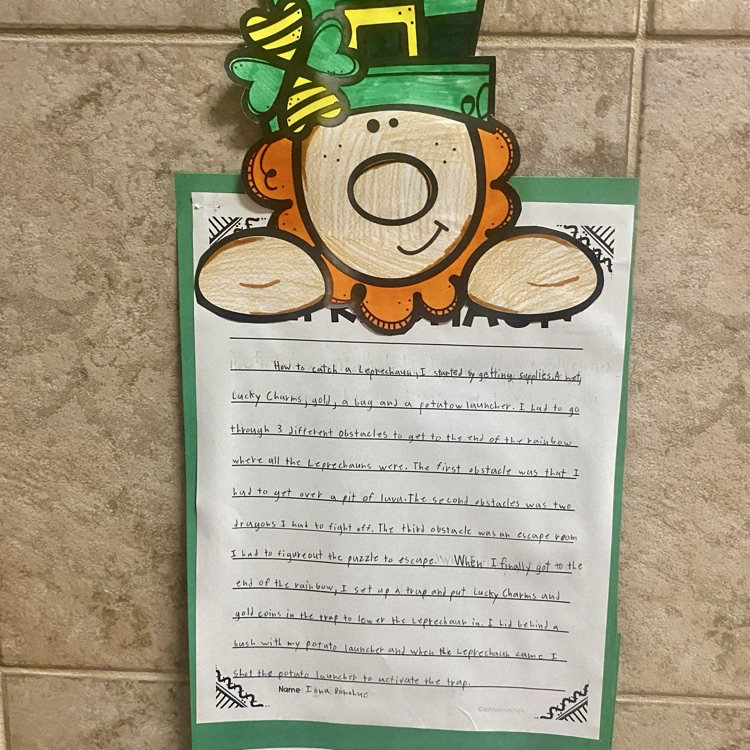 How to catch a Leprechaun, I started by getting supplies. A net,
Lucky Charms, gold, a bag and a potatow launcher. I had to go
through 3 different obstacles to get to the end of the rainbow
where all the Leprechauns were. The first obstacle was that I
had to get over a pit of lava. The second obstacles was two
dragons I had to fight off. The third obstacle was an escape room
I had to figureout the puzzle to escape. When I finally got to the
end of the rainbow, I set up a trap and put Lucky Charms and
gold coins in the trap to lower the Leprechaun in. I hid behind a
bush with my potato launcher and when the Leprechaun came I
shot the potato launcher to activate the trap.
Name: Iona Donohue